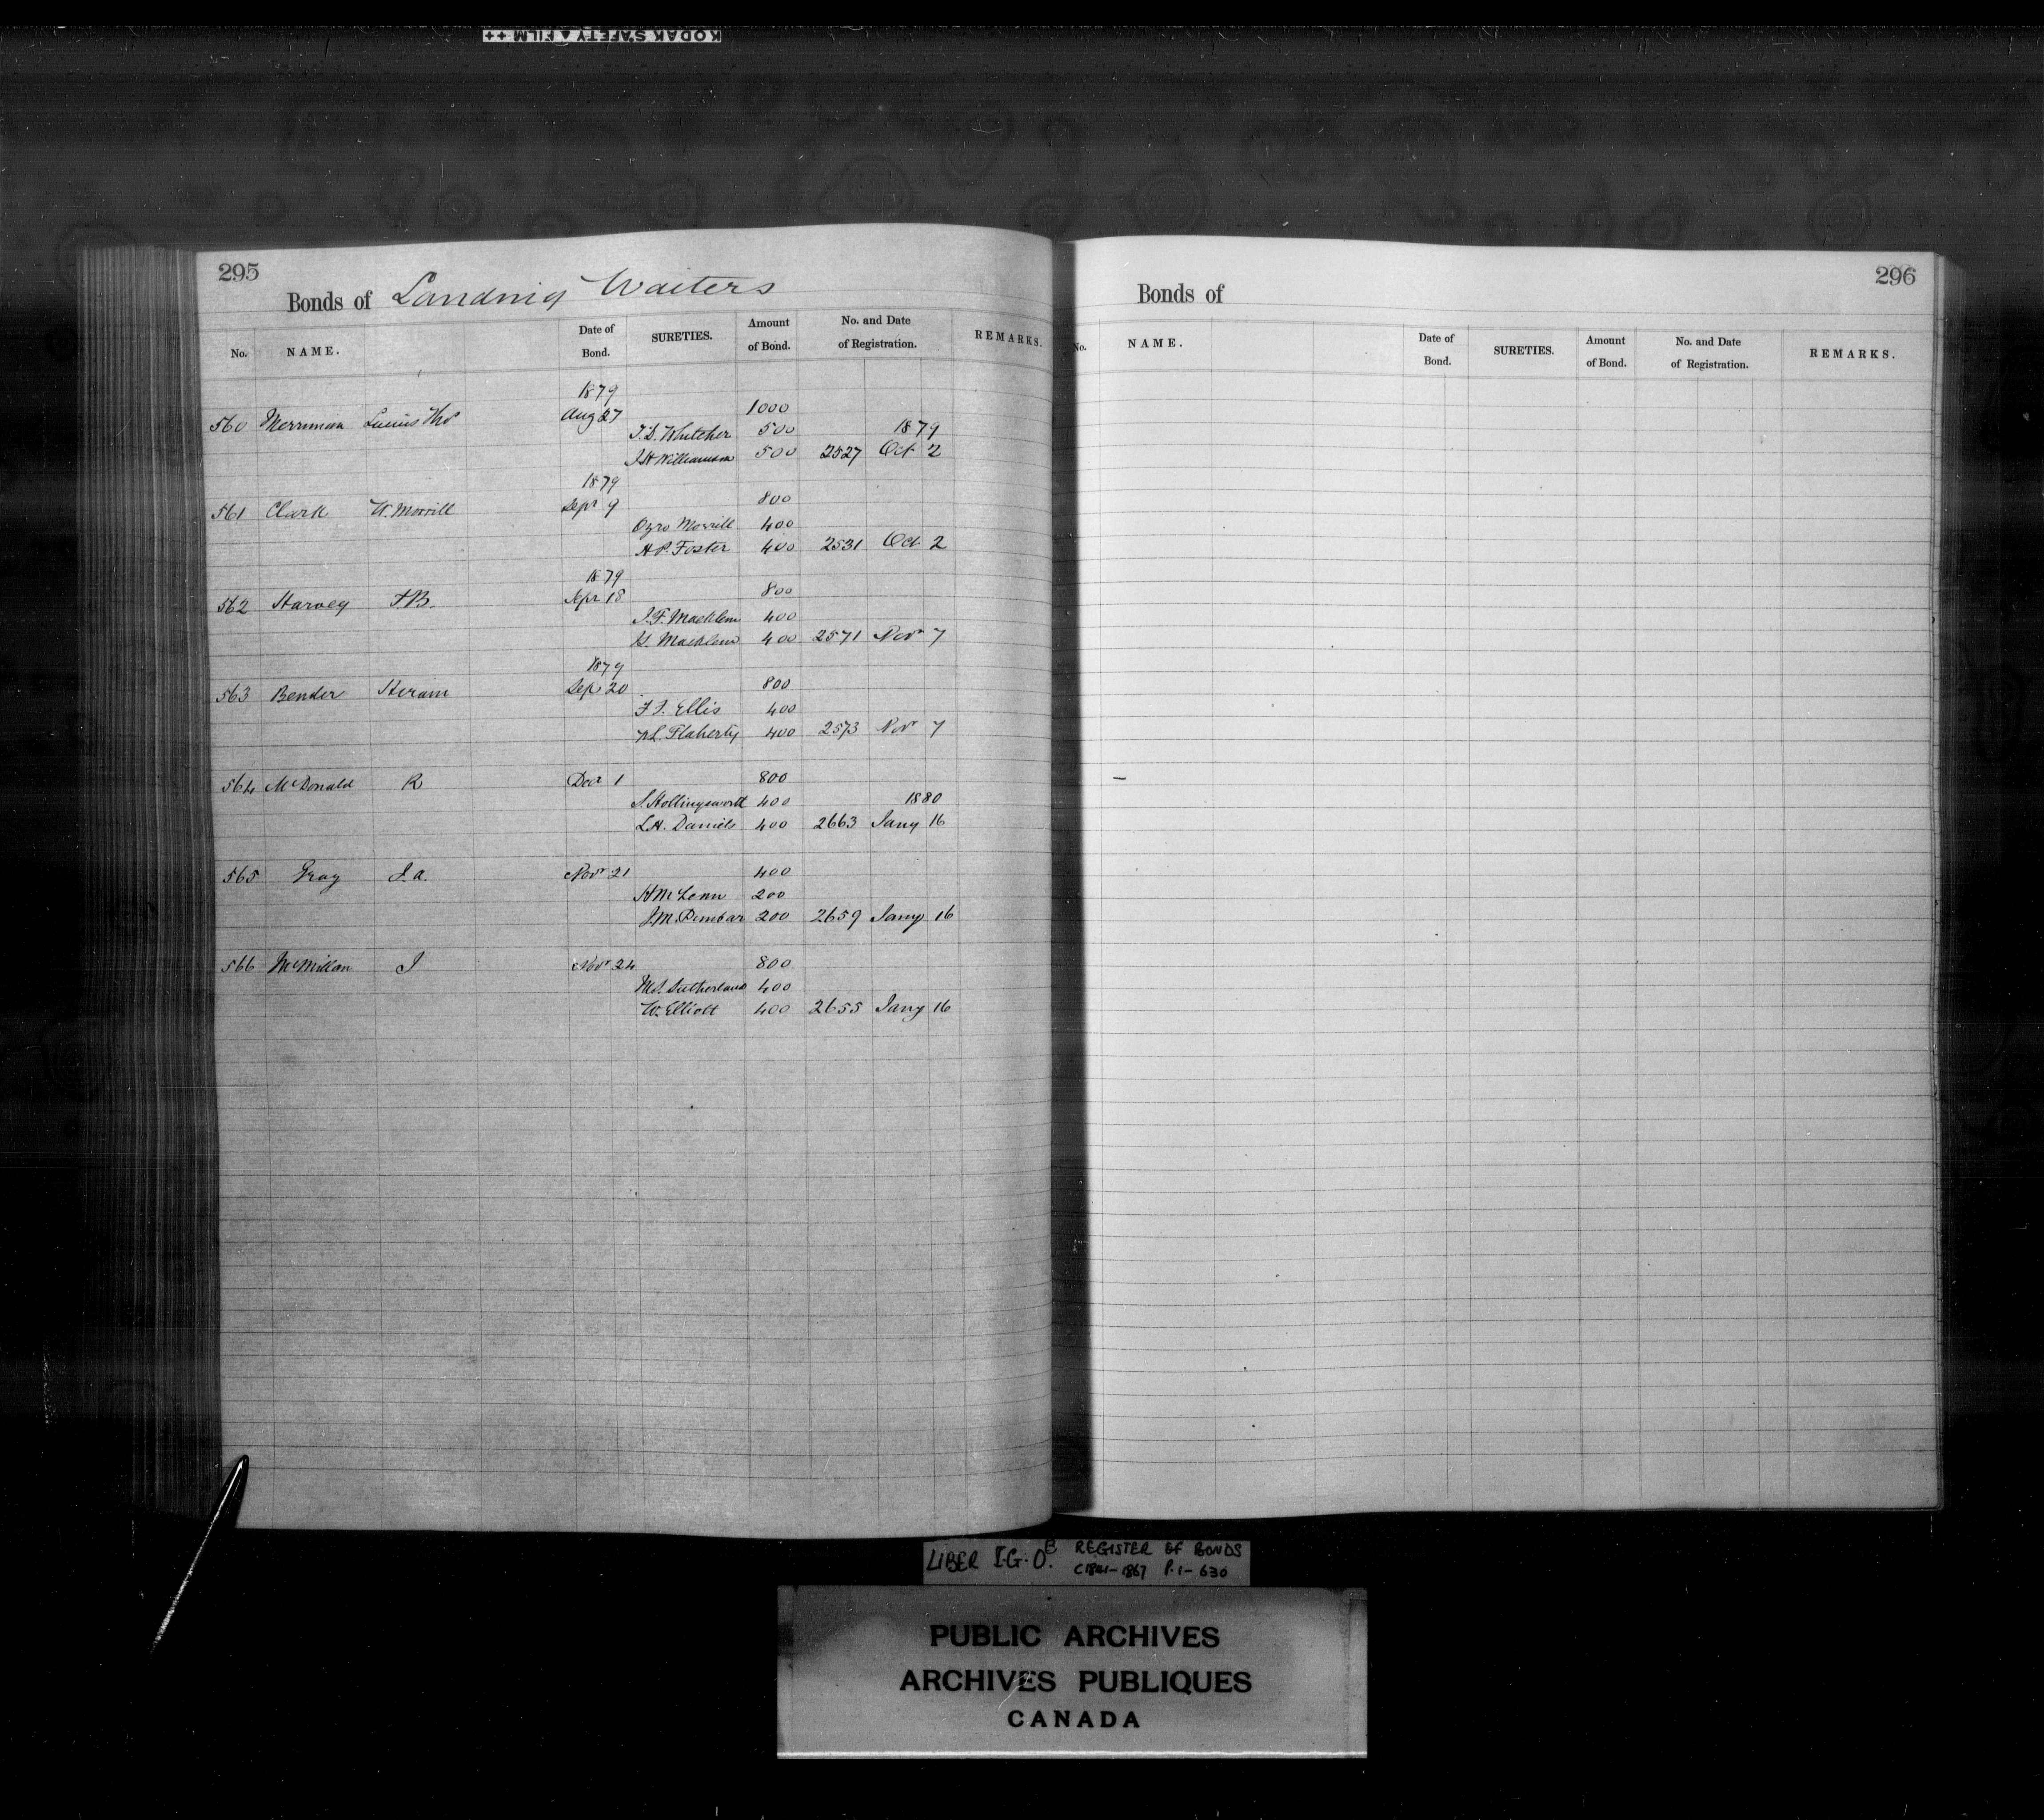 KODAK SAFETY ▲ FILM ++
295
Bonds of Landing Waiters
No. NAME. Date of Bond. SURETIES. Amount of Bond. No. and Date of Registration. REMARKS.
1879
560 Merriman Lucius Thos Aug 27 1000
500 1879
J.H. Williamson 500 2527 Oct 2
1879
561 Clark W. Morrill Sepr 9 800
Ozro Morrill 400
H.P. Foster 400 2531 Oct 2
1879
562 Harvey F.B. Apr 18 800
J.F. Macklem 400
Macklem 400 2571 Novr 7
1879
563 Bender Hiram Sep 20 800
F.J. Ellis 400
Flaherty 400 2573 Novr 7
564 McDonald R Decr 1 800
S. Hollingsworth 400 1880
L.H. Daniels 400 2663 Jany 16
565 Gray J.A. Novr 21 400
200
J.M. 200 2659 Jany 16
566 McMillan J Novr 24 800
Sutherland 400
W. Elliott 400 2655 Jany 16
296
Bonds of
No. NAME. Date of Bond. SURETIES. Amount of Bond. No. and Date of Registration. REMARKS.
LIBER I.G.O.B REGISTER OF BONDS
C1841-1867 P.1-630
PUBLIC ARCHIVES
ARCHIVES PUBLIQUES
CANADA